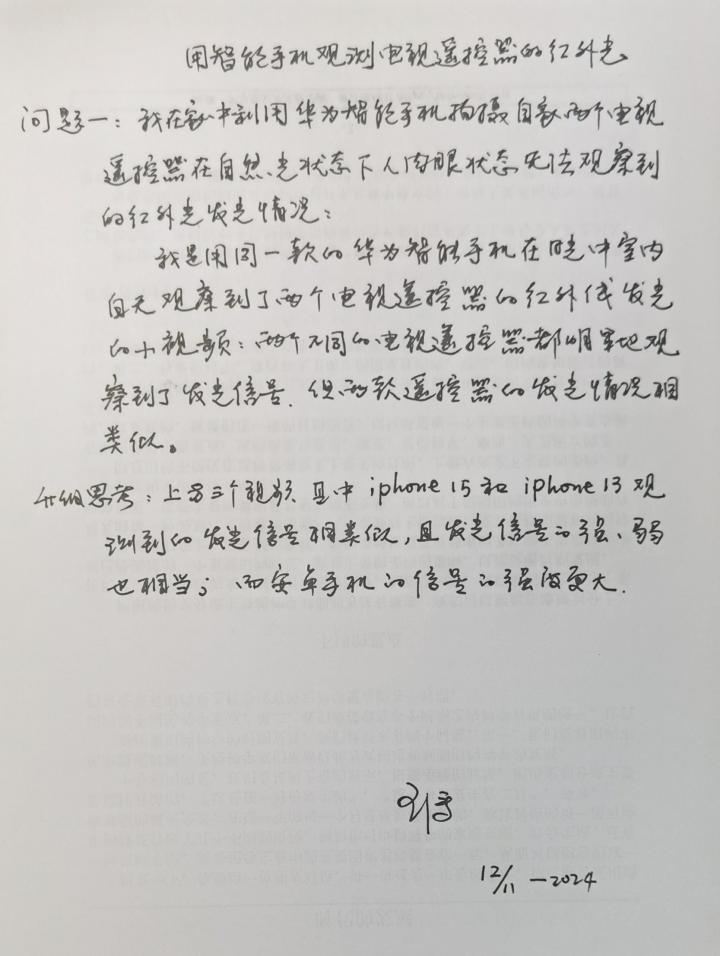 用智能手机观测电视遥控器的红外光
问题一：我在家中利用华为智能手机拍摄自家两个电视
遥控器在自然光状态下人肉眼状态无法观察到
的红外光发光情况：
我是用同一款的华为智能手机在晚中室内
白天观察到了两个电视遥控器的红外线发光
的小视频：两个不同的电视遥控器都明显地观
察到了发光信号，但两款遥控器的发光情况相
类似。
思考：上另三个视频 且中 iphone 15 和 iphone 13 观
测到的发光信号相类似，且发光信号的强、弱
也相当；而安卓手机的信号的强度更大.
12/11-2024